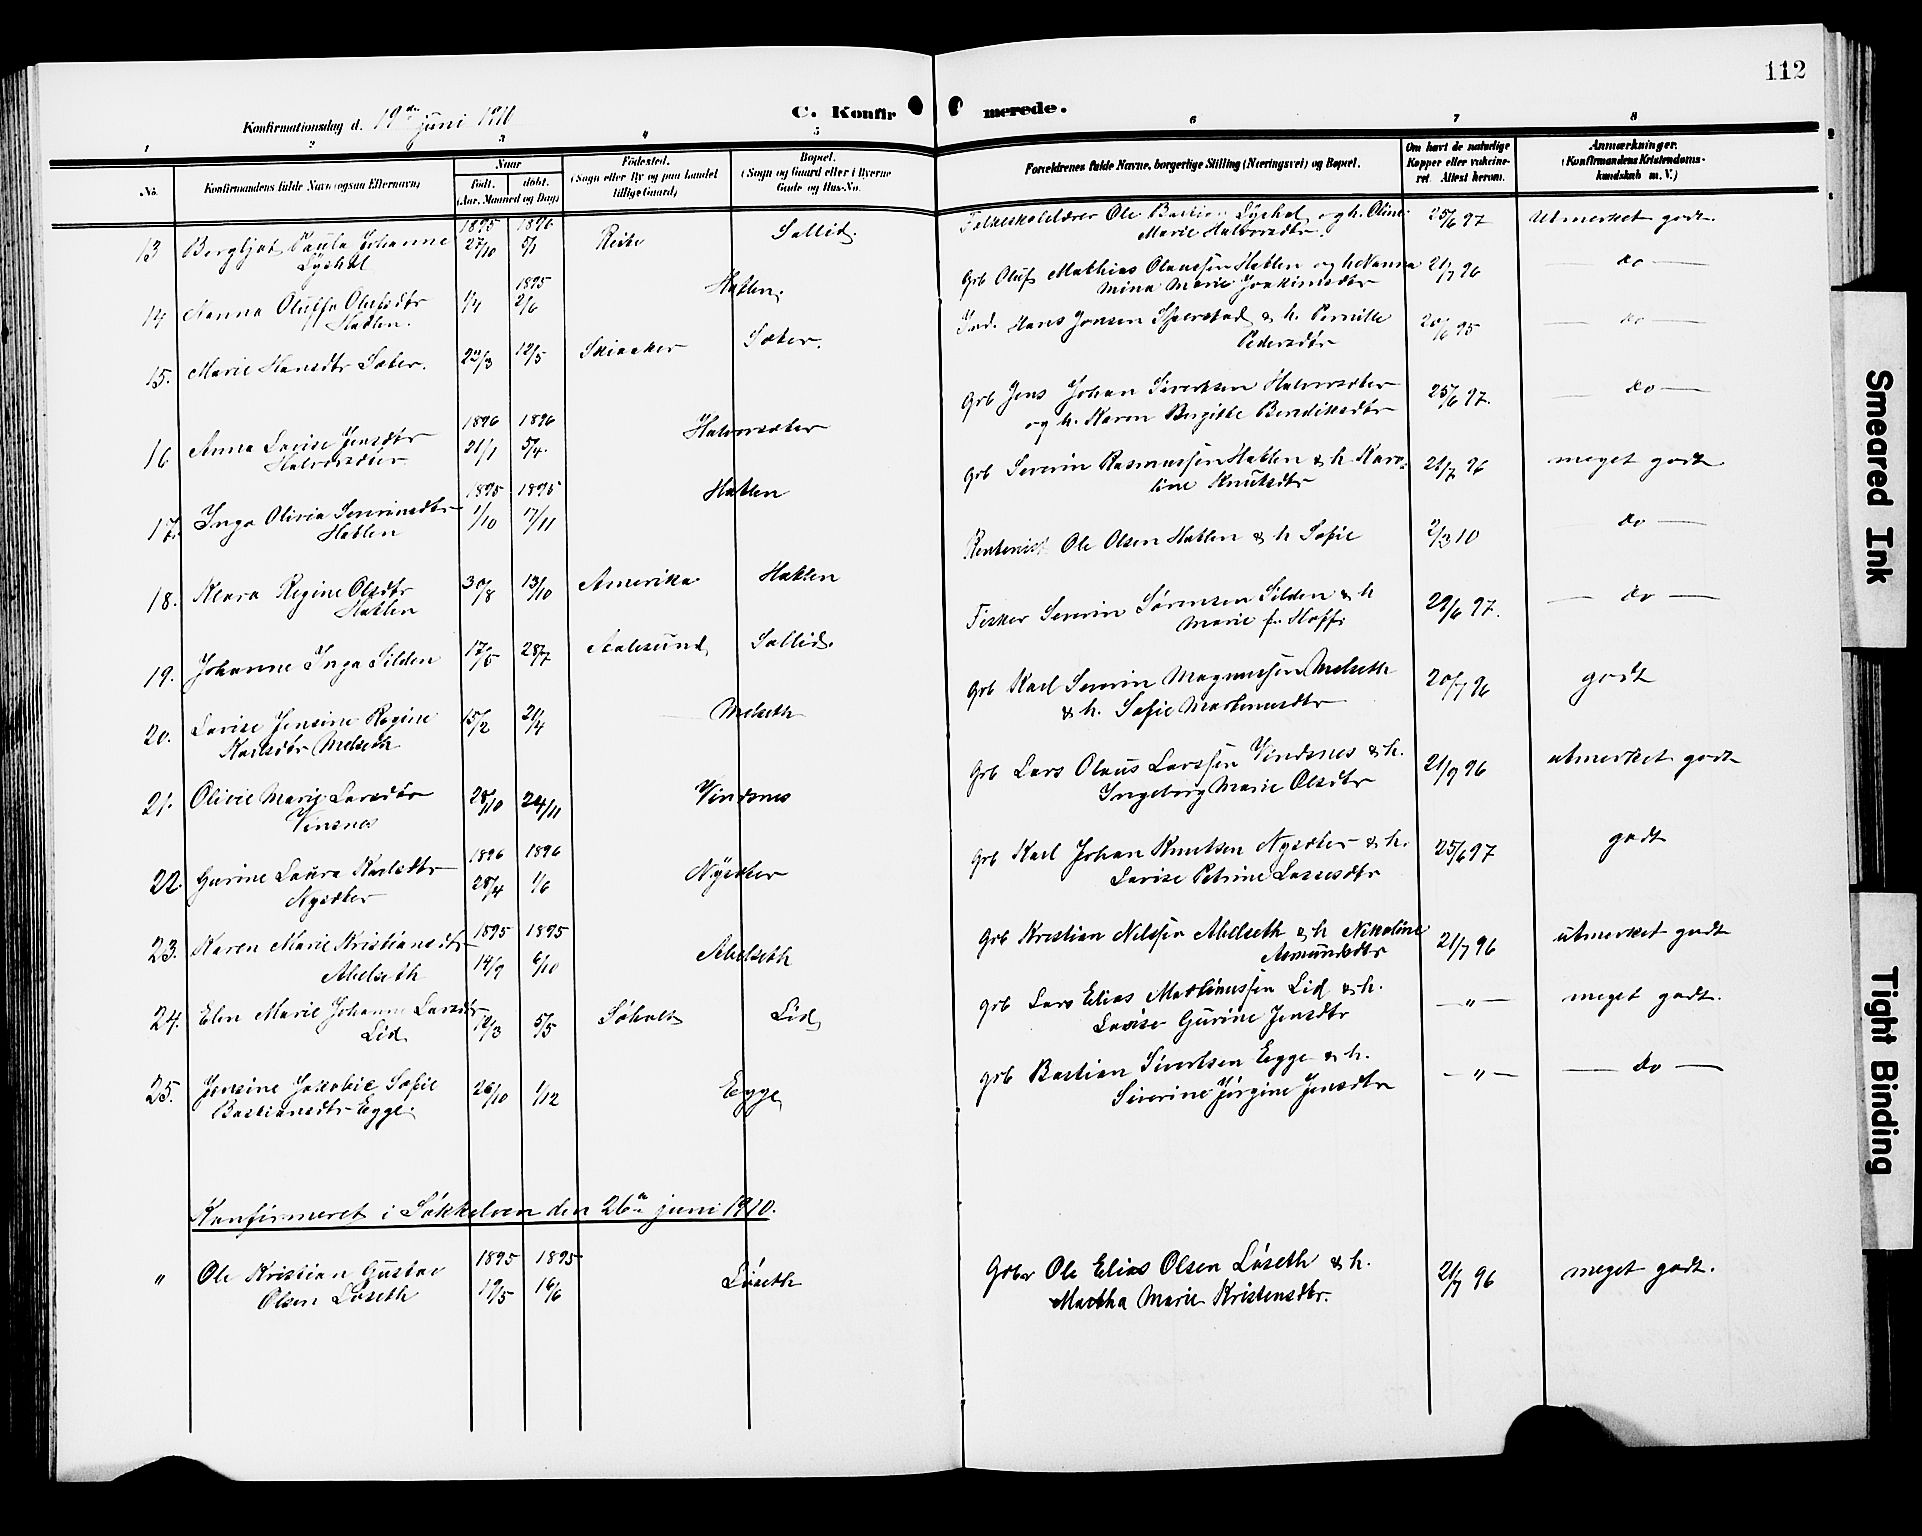 112
Konfirmationsdag d. 19de juni 1910
C. Konfirmerede.
1 2 3 4 5 6 7 8
No.
Konfirmandens fulde Navn (ogsaa Efternavn)
Naar
født. døbt.
(Aar, Maaned og Dag)
Fødested.
(Sogn eller By og paa Landet
tillige Gaard)
Bopæl.
(Sogn og Gaard eller i Byerne
Gade og Hus-No.
Forældrenes fulde Navne, borgerlige Stilling (Næringsvei) og Bopæl.
Om havt de naturlige
Kopper eller vaksine-
ret Attest herom.
Anmærkninger.
(Konfirmandens Kristendoms-
kundskab m. V.)
1895 1896
13 Bergljot Paula Johanne 27/10 5/1 Sallid. Folkeskolelærer Ole Bastian og h. Oline 25/6 97 Utmerket godt.
Marie Halvorsdtr.
1895
14 Nanna Oluffa Olufsdtr 2/6 Hatlen. Grb Oluf Mathias Olaussen Hatlen og h. Nanna 21/7 96 — do —
Hatlen. Mina Marie Joakimsdtr
15. Marie Hansdtr Sæter. 23/3 12/5 Skiaaker Sæter. Ind. Hans Jonsen & h. Pernille — do —
Pedersdtr
1896 1896
16 Anna Lovise Jensdtr 21/1 5/4. Halvorsæter Grb Jens Johan Sivertsen Halvorsæter 25/6 97. — do —
Halvorsæter og h. Karen Bergitte Bendiksdtr
1895 1895
17. Inga Olivia Severinsdtr 1/10 17/11 Hatlen Grb Severin Rasmussen Hatlen & h Karo- 21/7 96 meget godt
Hatlen line Knutsdtr
18. Klara Regine Olsdtr 30/8 13/10 Amerika Hatlen Rentenist Ole Olsen Hatlen & h Sofie 2/3 10 — do —
Hatlen
19. Johanne Inga Silden 17/5 28/7 Aalesund, Sallid. Fisker Severin Sørensen Silden & h 29/6 97. — do —
Marie f. Hoff.
20. Lovise Jensine Regine 15/2 21/4 Melseth Grb Karl Severin Magnussen Melseth 20/7 96 godt
Karlsdtr Melseth & h. Sofie Martinusdtr
21. Olivie Marie Larsdtr 28/10 24/11 Vindsnes Grb Lars Olaus Larssen Vindsnes & h. 21/9 96 utmerket godt
Vinsnes Ingeborg Marie Olsdtr
1896 1896
22. Gurine Laura Karlsdtr 28/4 1/6 Nysæter Grb Karl Johan Knutsen Nysæter & h. 25/6 97 godt
Nysæter Lovise Petrine Lassesdtr
1895 1895
23. Karen Marie Kristiansdtr 14/9 6/10 Abelseth Grb Kristian Nilssen Abelseth & h Nikoline 21/7 96 utmerket godt
Abelseth Asmundsdtr
24. Elen Marie Johanne Larsdtr 5/5 Søholt Lid, grb Lars Elias Martinussen Lid & h. — " — meget godt.
Lid Lovise Gurine Jensdtr
25. Jensine Jakobie Sofie 26/10 1/12 Egge, grb Bastian Sivertsen Egge & h. — " — — do —
Bastiansdtr Egge. Siverine Jørgine Jensdtr
Konfirmeret i Søkkelven den 26de juni 1910.
1895 1895
" Ole Kristian Gustav 19/5 16/6 Løseth Grbr Ole Elias Olsen Løseth & h. 21/7 96 meget godt.
Olsen Løseth Martha Marie Kristensdtr.
Smeared Ink
Tight Binding